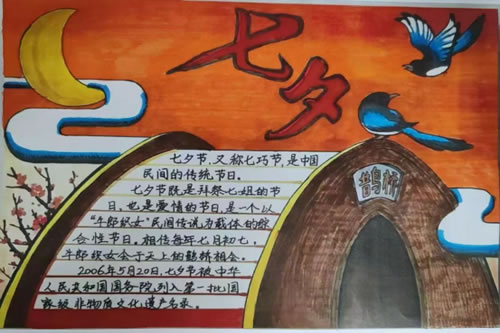 七夕
七夕节，又称七巧节，是中国
民间的传统节日。
七夕节既是拜祭七姐的节
日，也是爱情的节日，是一个以
“牛郎织女”民间传说为载体的综
合性节日。相传每年七月初七，
牛郎织女会于天上的鹊桥相会。
2006年5月20日，七夕节被中华
人民共和国国务院列入第一批国
家级非物质文化遗产名录。
鹊桥